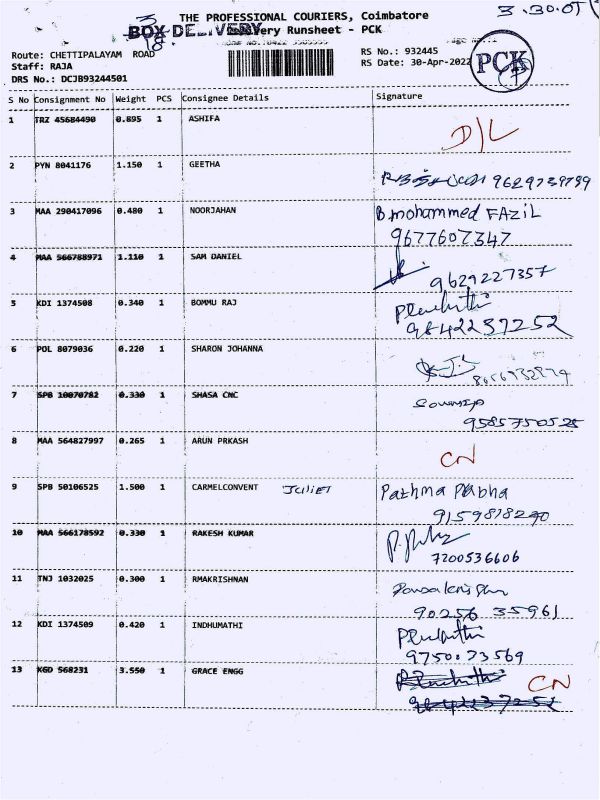 THE PROFESSIONAL COURIERS, Coimbatore
3.30.
BOX DELIVERY
Delivery Runsheet - PCK
Route: CHETTIPALAYAM ROAD
RS No.: 932445
Staff: RAJA
RS Date: 30-Apr-2022
PCK
DRS No.: DCJB93244501
S No Consignment No Weight PCS Consignee Details Signature
1 TRZ 45684490 0.895 1 ASHIFA D/L
2 PYN 8041176 1.150 1 GEETHA 9629739799
3 MAA 290417096 0.480 1 NOORJAHAN B.mohammed FAZIL
9677607347
4 MAA 566788971 1.110 1 SAM DANIEL
9629227357
5 KDI 1374508 0.340 1 BOMMU RAJ
9842237252
6 POL 8079036 0.220 1 SHARON JOHANNA
7 SPB 10070782 0.330 1 SHASA CNC
9585750525
8 MAA 564827997 0.265 1 ARUN PRKASH CN
9 SPB 50106525 1.500 1 CARMELCONVENT JULIET Pathma Prabha
9159878290
10 MAA 566178592 0.330 1 RAKESH KUMAR
7200536606
11 TNJ 1032025 0.300 1 RMAKRISHNAN
90256 35961
12 KDI 1374509 0.420 1 INDHUMATHI
9750073569
13 KGD 568231 3.550 1 GRACE ENGG CN
9842237252